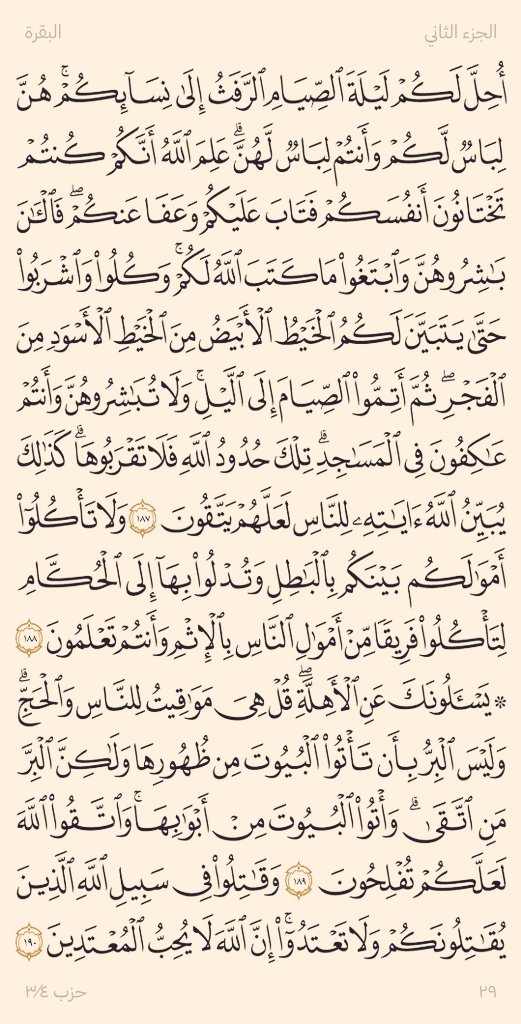 الجزء الثاني
البقرة
أُحِلَّ لَكُمۡ لَيۡلَةَ ٱلصِّيَامِ ٱلرَّفَثُ إِلَىٰ نِسَآئِكُمۡۚ هُنَّ
لِبَاسٞ لَّكُمۡ وَأَنتُمۡ لِبَاسٞ لَّهُنَّۗ عَلِمَ ٱللَّهُ أَنَّكُمۡ كُنتُمۡ
تَخۡتَانُونَ أَنفُسَكُمۡ فَتَابَ عَلَيۡكُمۡ وَعَفَا عَنكُمۡۖ فَٱلۡـَٰٔنَ
بَٰشِرُوهُنَّ وَٱبۡتَغُواْ مَا كَتَبَ ٱللَّهُ لَكُمۡۚ وَكُلُواْ وَٱشۡرَبُواْ
حَتَّىٰ يَتَبَيَّنَ لَكُمُ ٱلۡخَيۡطُ ٱلۡأَبۡيَضُ مِنَ ٱلۡخَيۡطِ ٱلۡأَسۡوَدِ مِنَ
ٱلۡفَجۡرِۖ ثُمَّ أَتِمُّواْ ٱلصِّيَامَ إِلَى ٱلَّيۡلِۚ وَلَا تُبَٰشِرُوهُنَّ وَأَنتُمۡ
عَٰكِفُونَ فِي ٱلۡمَسَٰجِدِۗ تِلۡكَ حُدُودُ ٱللَّهِ فَلَا تَقۡرَبُوهَاۗ كَذَٰلِكَ
يُبَيِّنُ ٱللَّهُ ءَايَٰتِهِۦ لِلنَّاسِ لَعَلَّهُمۡ يَتَّقُونَ ١٨٧ وَلَا تَأۡكُلُوٓاْ
أَمۡوَٰلَكُم بَيۡنَكُم بِٱلۡبَٰطِلِ وَتُدۡلُواْ بِهَآ إِلَى ٱلۡحُكَّامِ
لِتَأۡكُلُواْ فَرِيقٗا مِّنۡ أَمۡوَٰلِ ٱلنَّاسِ بِٱلۡإِثۡمِ وَأَنتُمۡ تَعۡلَمُونَ ١٨٨
۞ يَسۡـَٔلُونَكَ عَنِ ٱلۡأَهِلَّةِۖ قُلۡ هِيَ مَوَٰقِيتُ لِلنَّاسِ وَٱلۡحَجِّۗ
وَلَيۡسَ ٱلۡبِرُّ بِأَن تَأۡتُواْ ٱلۡبُيُوتَ مِن ظُهُورِهَا وَلَٰكِنَّ ٱلۡبِرَّ
مَنِ ٱتَّقَىٰۗ وَأۡتُواْ ٱلۡبُيُوتَ مِنۡ أَبۡوَٰبِهَاۚ وَٱتَّقُواْ ٱللَّهَ
لَعَلَّكُمۡ تُفۡلِحُونَ ١٨٩ وَقَٰتِلُواْ فِي سَبِيلِ ٱللَّهِ ٱلَّذِينَ
يُقَٰتِلُونَكُمۡ وَلَا تَعۡتَدُوٓاْۚ إِنَّ ٱللَّهَ لَا يُحِبُّ ٱلۡمُعۡتَدِينَ ١٩٠
٢٩
حزب ٣/٤